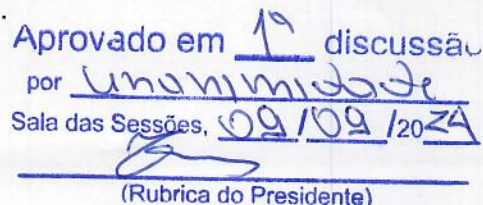 Aprovado em 1ª discussão
por unanimidade
Sala das Sessões, 09/09/2024
(Rubrica do Presidente)